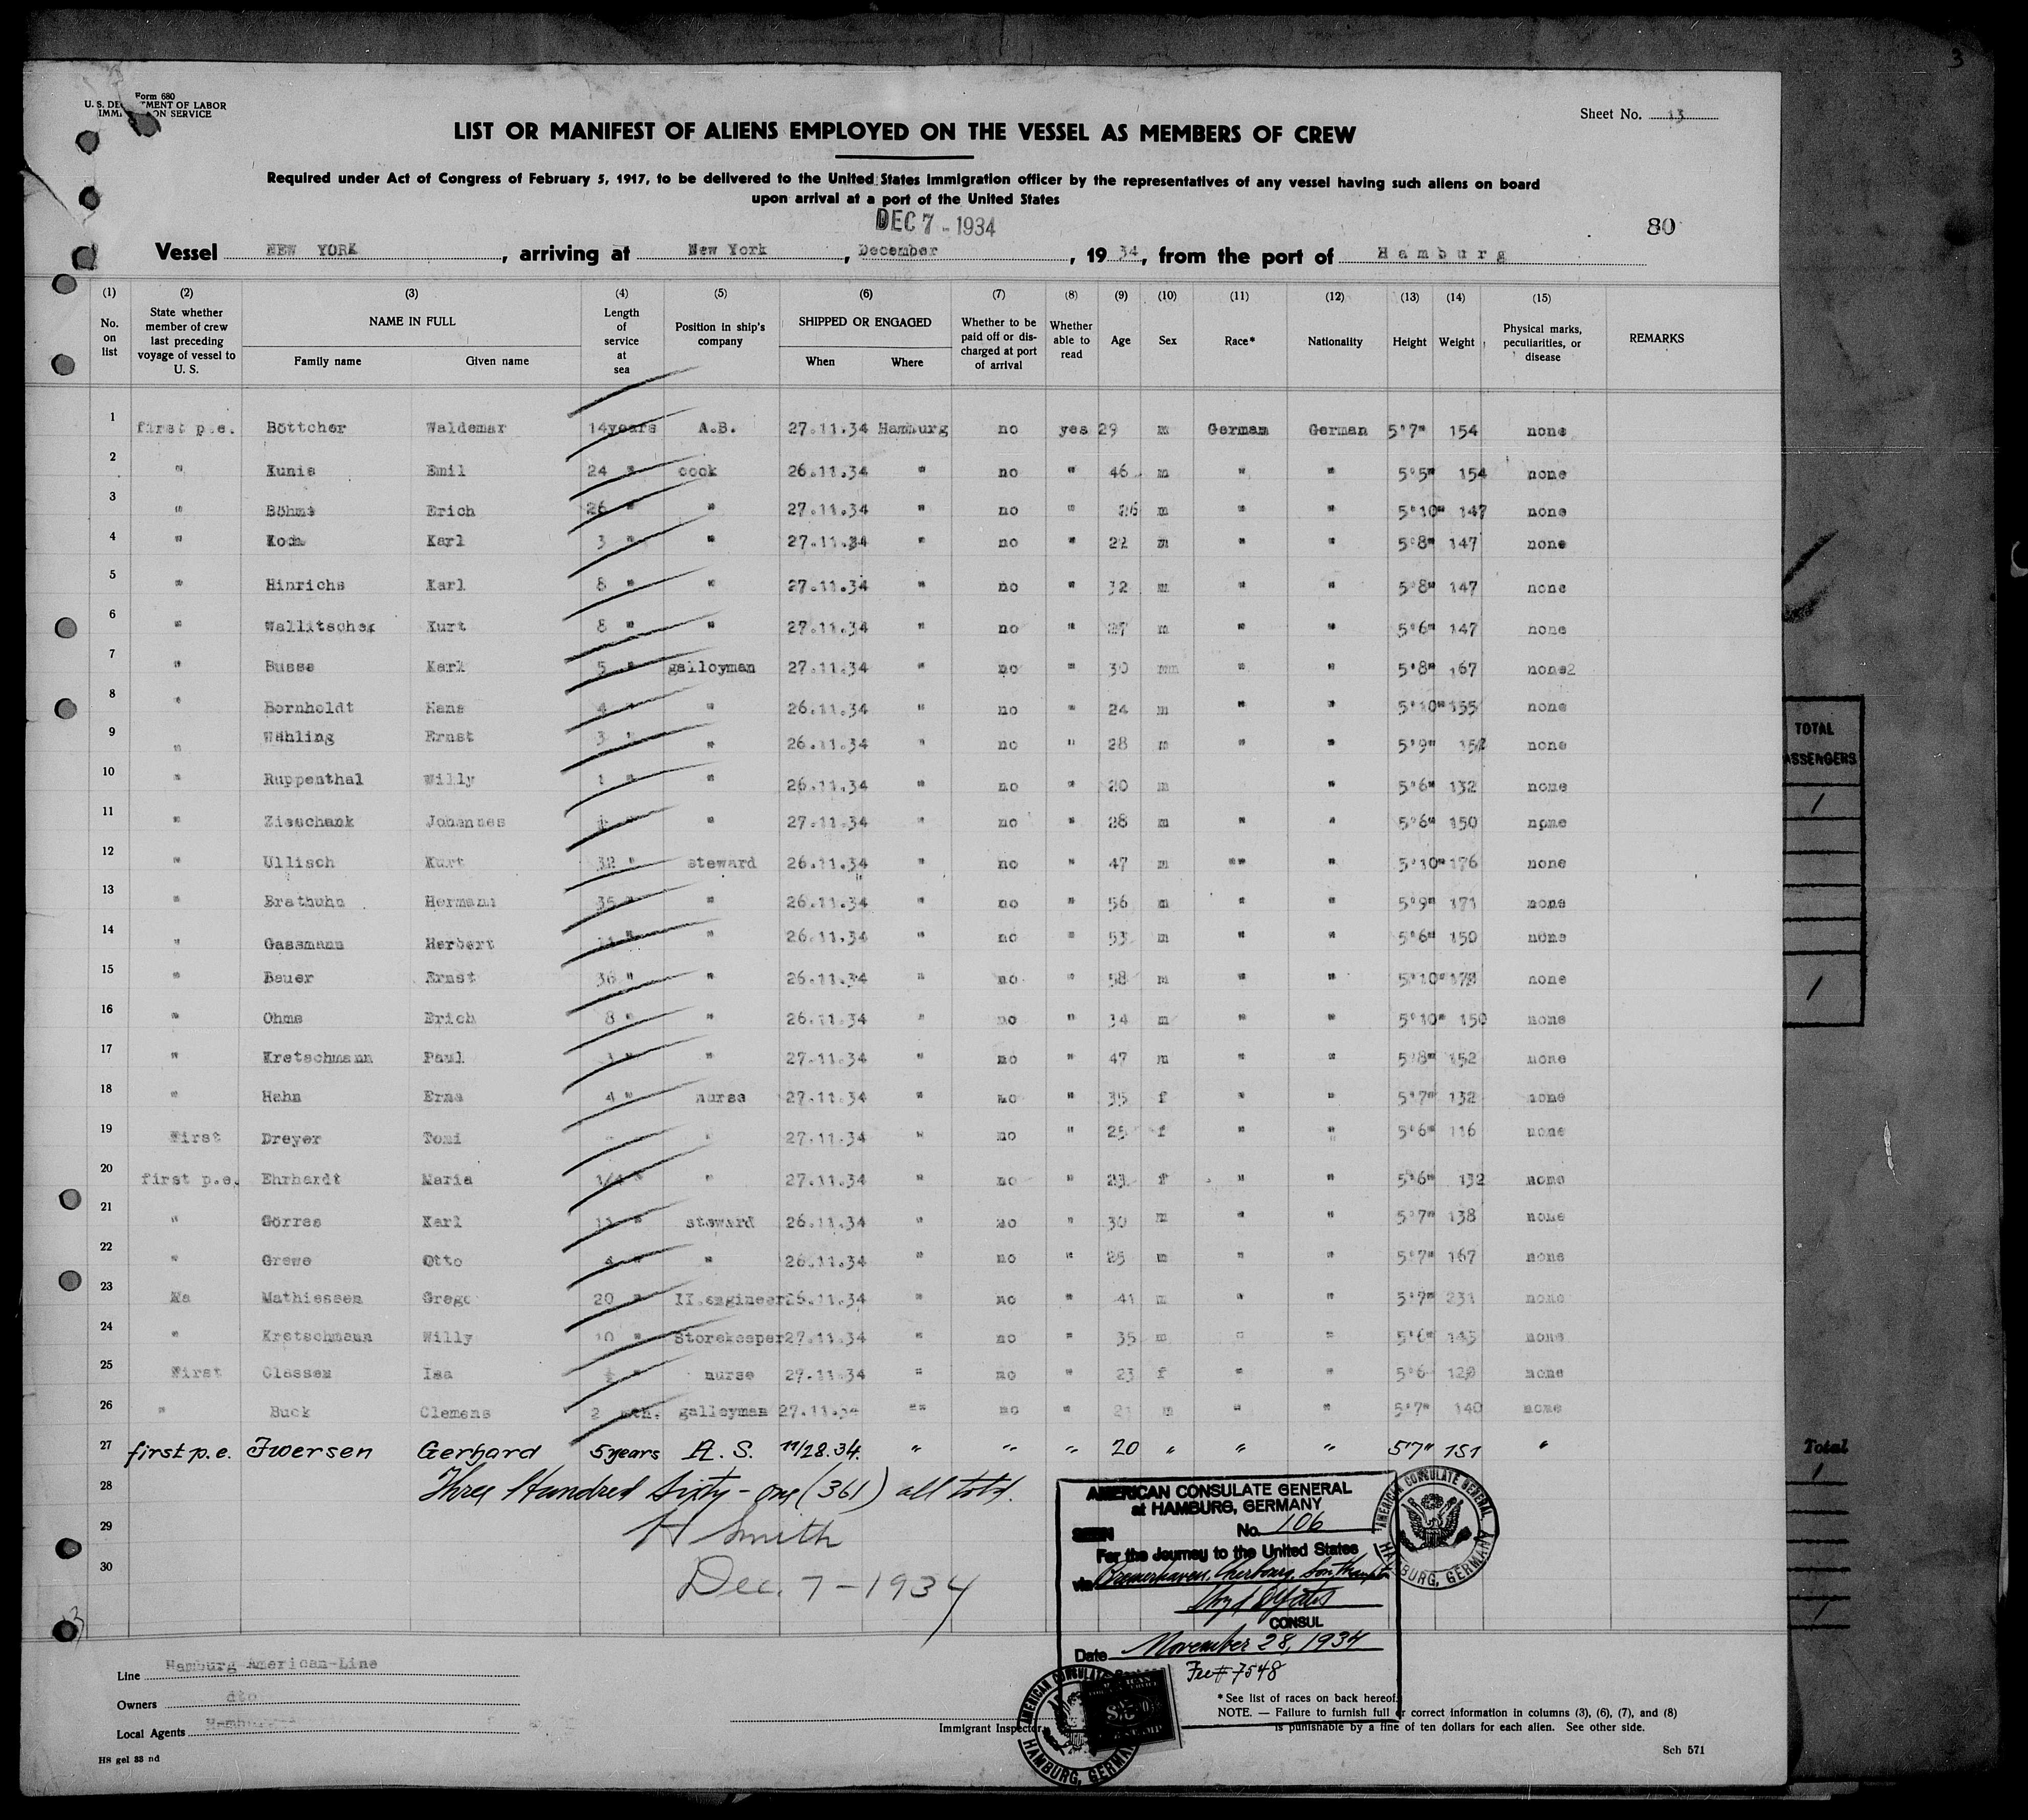 3
Form 680
U. S. DE MENT OF LABOR
IMMI ON SERVICE
Sheet No. 13
LIST OR MANIFEST OF ALIENS EMPLOYED ON THE VESSEL AS MEMBERS OF CREW
Required under Act of Congress of February 5, 1917, to be delivered to the United States immigration officer by the representatives of any vessel having such aliens on board
upon arrival at a port of the United States
DEC 7 - 1934
80
Vessel NEW YORK, arriving at New York, December, 1934, from the port of Hamburg
(1) (2) (3) (4) (5) (6) (7) (8) (9) (10) (11) (12) (13) (14) (15)
No. on list State whether member of crew last preceding voyage of vessel to U. S. NAME IN FULL Family name Given name Length of service at sea Position in ship's company SHIPPED OR ENGAGED When Where Whether to be paid off or discharged at port of arrival Whether able to read Age Sex Race* Nationality Height Weight Physical marks, peculiarities, or disease REMARKS
1 first p.e. Böttcher Waldemar 14years A.B. 27.11.34 Hamburg no yes 29 m German German 5'7" 154 none
2 " Kunis Emil 24 " cook 26.11.34 " no " 46 m " " 5'5" 154 none
3 " Böhme Erich 26 " " 27.11.34 " no " 26 m " " 5'10" 147 none
4 " Koch Karl 3 " " 27.11.34 " no " 22 m " " 5'8" 147 none
5 " Hinrichs Karl 8 " " 27.11.34 " no " 32 m " " 5'8" 147 none
6 " Wallitschek Kurt 8 " " 27.11.34 " no " 27 m " " 5'6" 147 none
7 " Busse Karl 5 " galleyman 27.11.34 " no " 30 mm " " 5'8" 167 none2
8 " Bornholdt Hans 4 " " 26.11.34 " no " 24 m " " 5'10" 155 none
9 " Wähling Ernst 3 " " 26.11.34 " no " 28 m " " 5'9" 152 none
10 " Ruppenthal Willy 1 " " 26.11.34 " no " 20 m " 5'6" 132 none
11 " Zieschank Johannes " " 27.11.34 " no " 28 m " " 5'6" 150 none
12 " Ullisch Kurt 32 " steward 26.11.34 " no " 47 m "" " 5'10" 176 none
13 " Brathuhn Hermann 35 " " 26.11.34 " no " 56 m " " 5'9" 171 none
14 " Gassmann Herbert " " 26.11.34 " no " 53 m " " 5'6" 150 none
15 " Bauer Ernst 36 " " 26.11.34 " no " 58 m " " 5'10" none
16 " Ohms Erich 8 " " 26.11.34 " no " 34 m " " 5'10" 150 none
17 " Kretschmann Paul " " 27.11.34 " no " 47 m " " 5'8" 152 none
18 " Hahn Erna 4 " nurse 27.11.34 " no " 35 f " " 5'7" 132 none
19 First Dreyer Tomi - " 27.11.34 " no " 25 f " " 5'6" 116 none
20 first p.e. Ehrhardt Maria 1/4 " " 27.11.34 " no " 23 f " " 5'6" 132 none
21 " Görres Karl 11 " steward 26.11.34 " no " 30 m " " 5'7" 138 none
22 " Grewe Otto 4 " " 26.11.34 " no " 25 m " " 5'7" 167 none
23 Na Mathiessen Grego 20 " II.engineer 26.11.34 " no " 41 m " " 5'7" 231 none
24 " Kretschmann Willy 10 " Storekeeper 27.11.34 " no " 35 m " " 5'6" 145 none
25 First Classen Isa " nurse 27.11.34 " no " 23 f " " 5'6 120 none
26 " Buck Clemens 2 mth. galleyman 27.11.34 "" no " 21 m " " 5'7" 140 none
27 first p.e. Iwersen Gerhard 5 years A. S. 11/28.34. " " " 20 " " " 5'7" 151 "
28 Three Hundred Sixty-one (361) all told.
29 H Smith
30 Dec. 7 - 1934
AMERICAN CONSULATE GENERAL
at HAMBURG, GERMANY
SEEN No. 106
For the Journey to the United States
via Bremerhaven, Cherbourg, Southampton
CONSUL
Date November 28, 1934
Fee # 7548
AMERICAN CONSULATE GENERAL HAMBURG, GERMANY
AMERICAN CONSULATE HAMBURG, GERMANY
Line Hamburg-American-Line
Owners dto
Local Agents
Immigrant Inspector.
* See list of races on back hereof.
NOTE. — Failure to furnish full or correct information in columns (3), (6), (7), and (8)
is punishable by a fine of ten dollars for each alien. See other side.
H8 gel 33 nd
Sch 571
TOTAL
ASSENGERS
1
1
Total
1
1